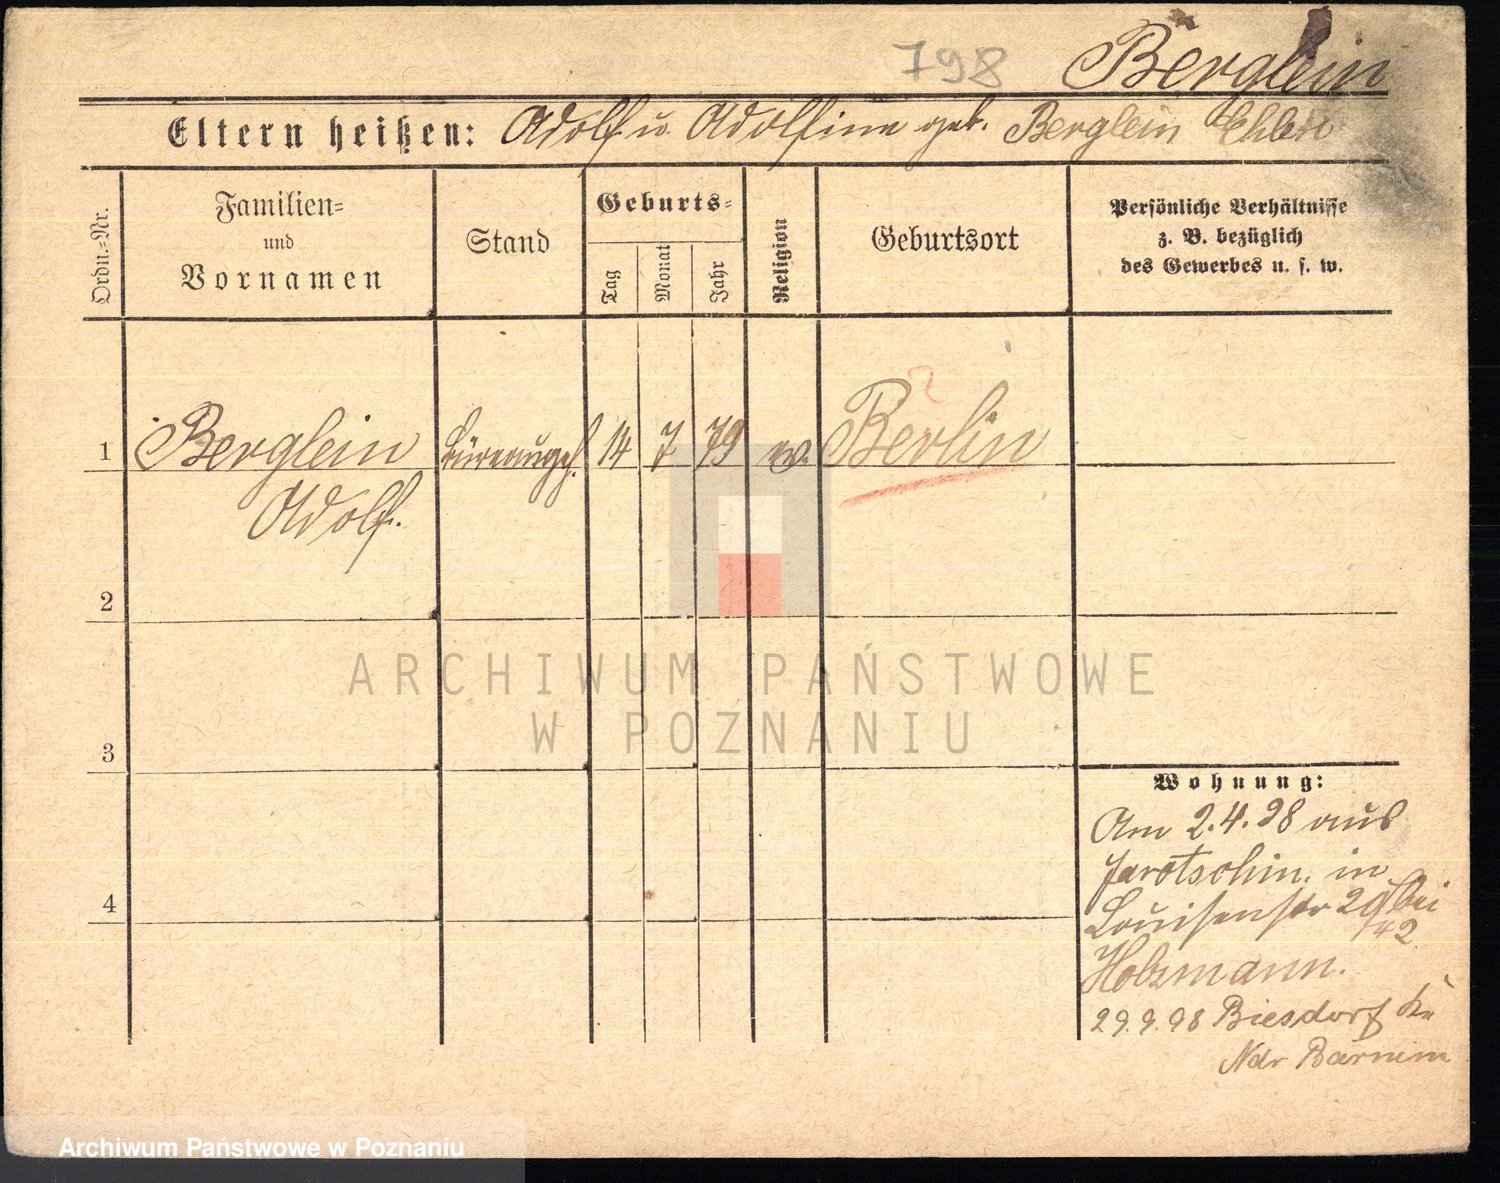 798
Berglein
Eltern heißen: Adolf u. Adolfine geb. Berglein Ehlert
Ordn.=Nr.
Familien=
und
Vornamen
Stand
Geburts=
Tag
Monat
Jahr
Religion
Geburtsort
Persönliche Verhältnisse
z. B. bezüglich
des Gewerbes u. s. w.
?
1 Berglein Büreaugeh. 14 7 79 ev. Berlin
Adolf.
2
ARCHIWUM PAŃSTWOWE
W POZNANIU
3
Wohnung:
Am 2.4.98 aus
Jarotschin. in
Louisenstr 20 bei
42
4
Holzmann.
29.9.98 Biesdorf Kr
Ndr Barnim
Archiwum Państwowe w Poznaniu